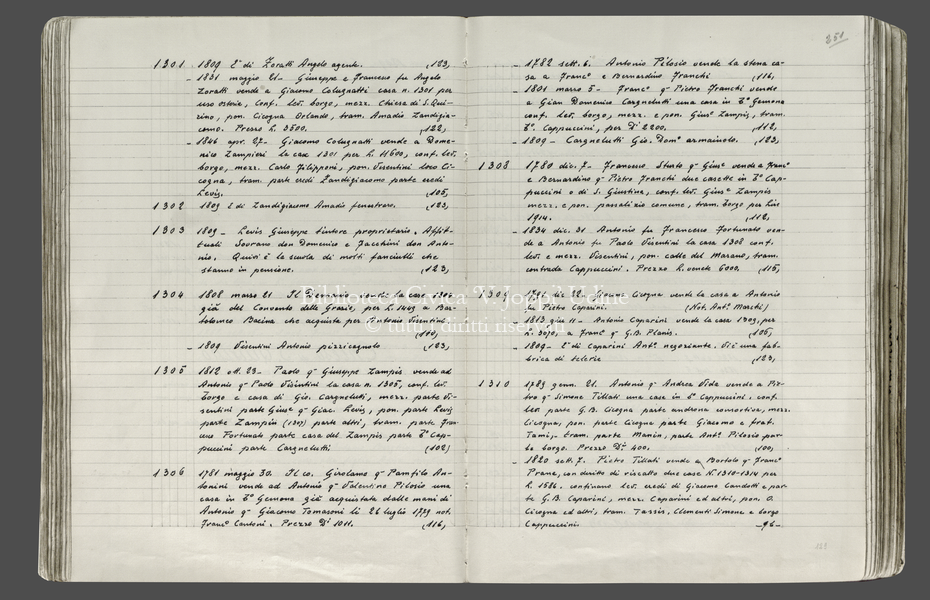 1301 1809 È di Zoratti Angelo agente. (123)
- 1831 maggio 21 - Giuseppe e Francesco fu Angelo
Zoratti vende a Giacomo Colugnatti casa n. 1301 per
uso osterie, conf. lev. borgo, mezz. Chiesa di S. Qui-
rino, pon. Cicogna Orlando, tram. Amadio Zandigia-
como. Prezzo L. 3500. (122)
- 1846 apr. 27 - Giacomo Colugnatti vende a Dome-
nico Zampieri la casa 1301 per L. 11600, conf. lev.
borgo, mezz. Carlo Filipponi, pon. Visentini loco Ci-
cogna, tram. parte eredi Zandigiacomo parte eredi
Levis. (105)
1302 1809 È di Zandigiacomo Amadio fenestraro. (123)
1303 1809 - Levis Giuseppe tintore proprietario. Affit-
tuali Sovrano don Domenico e Jacchini don Anto-
nio. Quivi è la scuola di molti fanciulli che
stanno in pensione. (123)
1304 1808 marzo 21 Il Demanio vende la casa 1304
già del Convento delle Grazie, per L. 1449 a Bar-
tolomeo Bacina che acquista per Antonio Visentini.
(100)
- 1809 Visentini Antonio pizzicagnolo (123)
1305 1812 ott. 23 - Paolo q.m Giuseppe Zampis vende ad
Antonio q.m Paolo Visintini la casa n. 1305, conf. lev.
borgo e casa di Gio. Cargnelutti, mezz. parte Vi-
sentini parte Gius.e q.m Giac. Levis, pon. parte Levis
parte Zampis (1307) parte altri, tram. parte Fran-
cesco Fortunato parte casa del Zampis parte B.o Cap-
puccini parte Cargnelutti (102)
1306 1781 maggio 30. Il co. Girolamo q.m Pamfilo An-
tonini vende ad Antonio q.m Valentino Pilosio una
casa in B.o Gemona già acquistata dalle mani di
Antonio q.m Giacomo Tomasoni li 26 luglio 1779 not.
Franc.o Cantoni. Prezzo D.ti 1011. (116)
251
- 1782 sett. 6. Antonio Pilosio vende la stessa ca-
sa a Franc.o e Bernardino Franchi (116)
- 1801 marzo 5 - Franc.o q.m Pietro Franchi vende
a Gian Domenico Cargnelutti una casa in B.o Gemona
conf. lev. borgo, mezz. e pon. Gius.e Zampis, tram.
B.o Cappuccini, per D.ti 2200. (112)
- 1809 - Cargnelutti Gio. Dom.o armaiuolo. (123)
1308 1780 dic. 7 - Francesco Stato q.m Gius.e vende a Franc.o
e Bernardino q.m Pietro Franchi due casette in B.o Cap-
puccini o di S. Giustina, conf. lev. Gius.e Zampis
mezz. e pon. passalizio comune, tram. borgo per Lire
1914. (112)
- 1834 dic. 31 Antonio fu Francesco Fortunato ven-
de a Antonio fu Paolo Visentini la casa 1308 conf.
lev. e mezz. Visentini, pon. calle del Marano, tram.
contrada Cappuccini. Prezzo L. venete 6000. (115)
Cicogna vende la casa a Antonio
q.m Pietro Caparini. (Not. Ant.o Marchi)
- 1813 giu. 11 - Antonio Caparini vende la casa 1309, per
L. 3070, a Franc.o q.m G.B. Planis. (105)
- 1809 - È di Caparini Ant.o negoziante. Vi è una fab-
brica di telerie (123)
1310 1789 genn. 21. Antonio q.m Andrea Vida vende a Pie-
tro q.m Simone Tillati una casa in B.o Cappuccini. conf.
lev. parte G.B. Cicogna parte androna consortiva, mezz.
Cicogna, pon. parte Cicogna parte Giacomo e frat.
Tami, tram. parte Manin, parte Ant.o Pilosio par-
te borgo. Prezzo D.ti 400. (100)
- 1820 sett. 7. Pietro Tillati vende a Bortolo q.m Franc.o
Prana, con diritto di riscatto due case N. 1310-1314 per
L. 1586. confinano lev. eredi di Giacomo Candotti e par-
te G.B. Caparini, mezz. Caparini ed altri, pon. O.
Cicogna ed altri, tram. Tassis, Clementi Simone e borgo
Cappuccini. -96-
Biblioteca Civica "V. Joppi" Udine
© tutti i diritti riservati